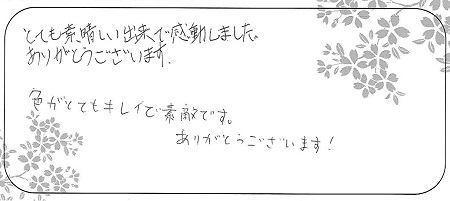 とても素晴しい出来で感動しました。
ありがとうございます.
色がとてもキレイで素敵です。
ありがとうございます!